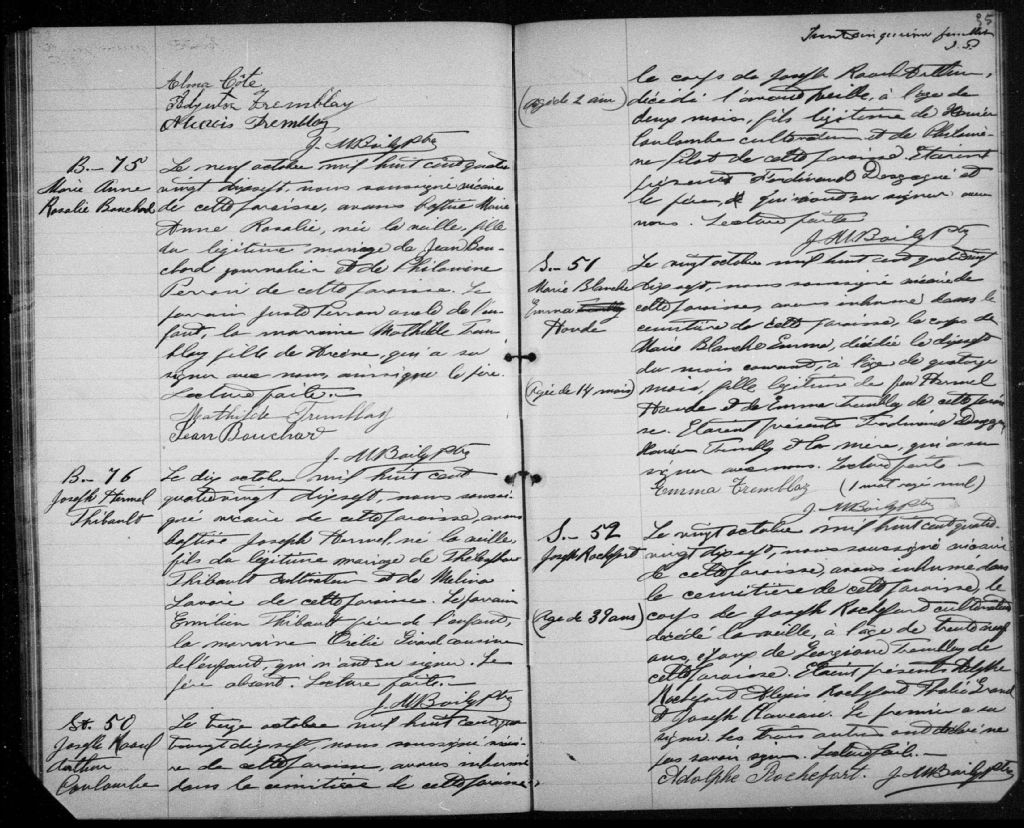 Alma Côté
Adjutor Tremblay
Alexis Tremblay
J. M Bailly Ptre
B.- 75
Marie Anne
Rosalie Bouchard
Le neuf octobre mil huit cent quatre
vingt dix sept, nous soussigné vicaire
de cette paroisse, avons baptisé Marie
Anne Rosalie, née la veille, fille
du légitime mariage de Jean Bou-
chard journalier et de Philomène
Perron de cette paroisse. Le
parrain Juste Perron aieul de l'en-
fant, la marraine Mathilde Trem
blay fille de qui a su
signer avec nous, ainsi que le père.
Lecture faite.-
Mathilde Tremblay
Jean Bouchard
J. M Bailly Ptre
B.- 76
Joseph Hermel
Thibault
Le dix octobre mil huit cent
quatrevingt dixsept, nous soussi-
gné vicaire de cette paroisse, avons
baptisé Joseph Hermel né la veille,
fils du légitime mariage de
Thibault cultivateur et de Melina
Savoie de cette paroisse. Le parrain
Emilien Thibault frère de l'enfant,
la marraine Girard cousine
de l'enfant, qui n'ont su signer. Le
père absent. Lecture faite.-
J. M Bailly Ptre
S. 50
Joseph Raoul
Arthur
Coulombe
Le treize octobre mil huit cent qua
trevingt dixsept, nous soussigné vicai-
re de cette paroisse, avons inhumé
dans le cimetière de cette paroisse,
35
Trente cinquième feuillet
(agé de 2 ans)
le corps de Joseph Raoul Arthur,
décédé l'avant veille, à l'age de
deux mois, fils légitime de
Coulombe cultivateur et de Philomè-
ne Pilot de cette paroisse. Etaient
présents Ferdinand Dosgagné et
le père, qui ont su signer avec
nous. Lecture faite
J M Bailly Ptre
S.- 51
Marie Blanche
Emma
Houde
(Agée de 14 mois)
Le vingt octobre mil huit cent quatrevingt
dixsept, nous soussigné vicaire de
cette paroisse, avons inhumé dans le
cimetière de cette paroisse, le corps de
Marie Blanche Emma, décédée le dixsept
du mois courant, à l'age de quatorze
mois, fille légitime de feu Hermel
Houde et de Emma Tremblay de cette parois
se. Etaient présents Ferdinand
Tremblay et la mère, qui a su
signer avec nous. Lecture faite -
Emma Tremblay (1 mot rayé nul)
J. M Bailly Ptre
S.- 52
Joseph Rochefort
(Age de 39 ans)
Le vingt octobre mil huit cent quatre-
vingt dixsept, nous soussigné vicaire
de cette paroisse, avons inhumé dans
le cimetière de cette paroisse, le
corps de Joseph Rochefort cultivateur
décédé la veille, à l'age de trente neuf
ans, époux de Georgiana Tremblay de
cette paroisse. Etaient présents Adolphe
Rochefort Alexis Rochefort Girard
et Joseph Claveau. Le premier a su
signer. Les trois autres ont déclaré ne
pas savoir signer. Lecture faite.-
Adolphe Rochefort. J. M Bailly Ptre